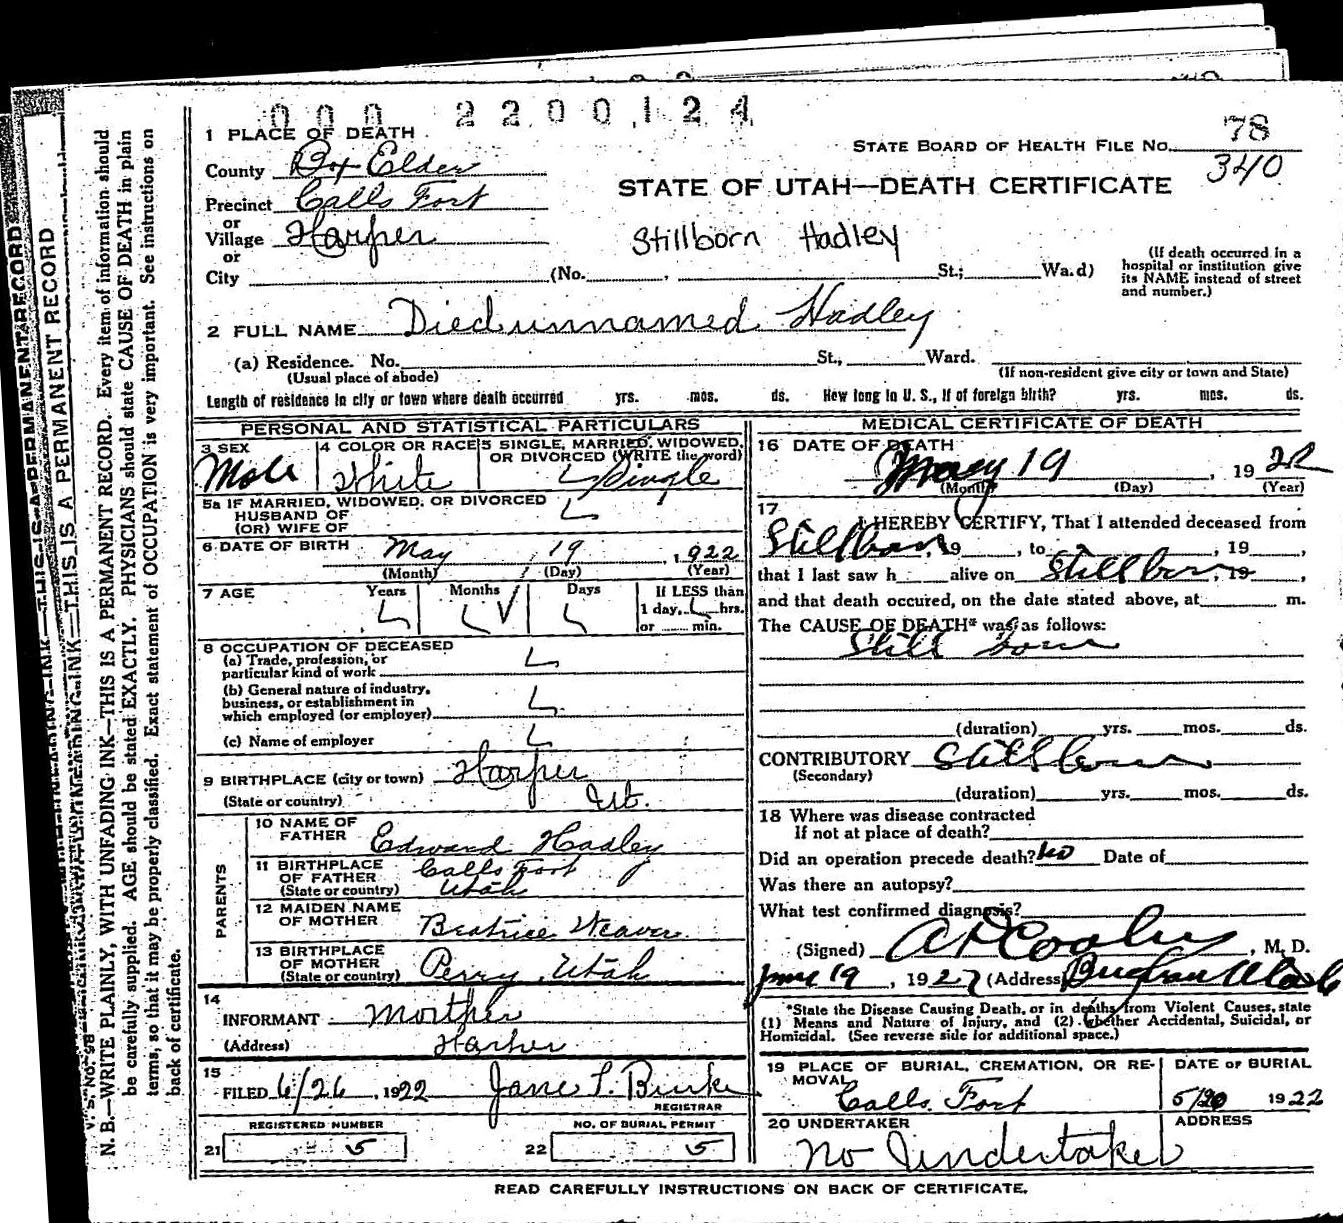 000 2200124
1 PLACE OF DEATH
STATE BOARD OF HEALTH FILE No. 78
340
County Box Elder
STATE OF UTAH—DEATH CERTIFICATE
Precinct Calls Fort
or
Village Harper
Stillborn Hadley
or
City (No. , St.; Wa.d)
(If death occurred in a
hospital or institution give
its NAME instead of street
and number.)
2 FULL NAME Died unnamed Hadley
(a) Residence. No. St., Ward.
(Usual place of abode)
(If non-resident give city or town and State)
Length of residence in city or town where death occurred yrs. mos. ds. How long in U. S., if of foreign birth? yrs. mos. ds.
PERSONAL AND STATISTICAL PARTICULARS
3 SEX
Male
4 COLOR OR RACE
White
5 SINGLE, MARRIED, WIDOWED,
OR DIVORCED (WRITE the word)
Single
5a IF MARRIED, WIDOWED, OR DIVORCED
HUSBAND OF
(OR) WIFE OF
6 DATE OF BIRTH May 19, 1922
(Month) (Day) (Year)
7 AGE Years Months Days If LESS than
1 day, hrs.
or min.
8 OCCUPATION OF DECEASED
(a) Trade, profession, or
particular kind of work
(b) General nature of industry,
business, or establishment in
which employed (or employer)
(c) Name of employer
9 BIRTHPLACE (city or town) Harper
(State or country) Ut.
PARENTS
10 NAME OF
FATHER Edward Hadley
11 BIRTHPLACE
OF FATHER Calls Fort
(State or country) Utah
12 MAIDEN NAME
OF MOTHER Beatrice Weaver
13 BIRTHPLACE
OF MOTHER
(State or country) Perry, Utah
14
INFORMANT Morther
(Address) Harper
15
FILED 6/26, 1922 Jane L. Burke
REGISTRAR
REGISTERED NUMBER
21 5
NO. OF BURIAL PERMIT
22 5
MEDICAL CERTIFICATE OF DEATH
16 DATE OF DEATH
May 19, 1922
(Month) (Day) (Year)
17
I HEREBY CERTIFY, That I attended deceased from
Stillborn, 19 , to , 19 ,
that I last saw h alive on Stillborn, 19 ,
and that death occured, on the date stated above, at m.
The CAUSE OF DEATH* was as follows:
Still born
(duration) yrs. mos. ds.
CONTRIBUTORY Stillborn
(Secondary)
(duration) yrs. mos. ds.
18 Where was disease contracted
If not at place of death?
Did an operation precede death? No Date of
Was there an autopsy?
What test confirmed diagnosis?
(Signed) A D Cooley, M. D.
June 19, 1922 (Address) Brigham Utah
*State the Disease Causing Death, or in deaths from Violent Causes, state
(1) Means and Nature of Injury, and (2) whether Accidental, Suicidal, or
Homicidal. (See reverse side for additional space.)
19 PLACE OF BURIAL, CREMATION, OR RE-
MOVAL
Calls Fort
DATE OF BURIAL
5/20 1922
20 UNDERTAKER
No Undertaker
ADDRESS
READ CAREFULLY INSTRUCTIONS ON BACK OF CERTIFICATE.
V. S. No. 98
N. B.—WRITE PLAINLY, WITH UNFADING INK—THIS IS A PERMANENT RECORD. Every item of information should
be carefully supplied. AGE should be stated EXACTLY. PHYSICIANS should state CAUSE OF DEATH in plain
terms, so that it may be properly classified. Exact statement of OCCUPATION is very important. See instructions on
back of certificate.
INK—THIS IS A PERMANENT RECORD
INK—THIS IS A PERMANENT RECORD